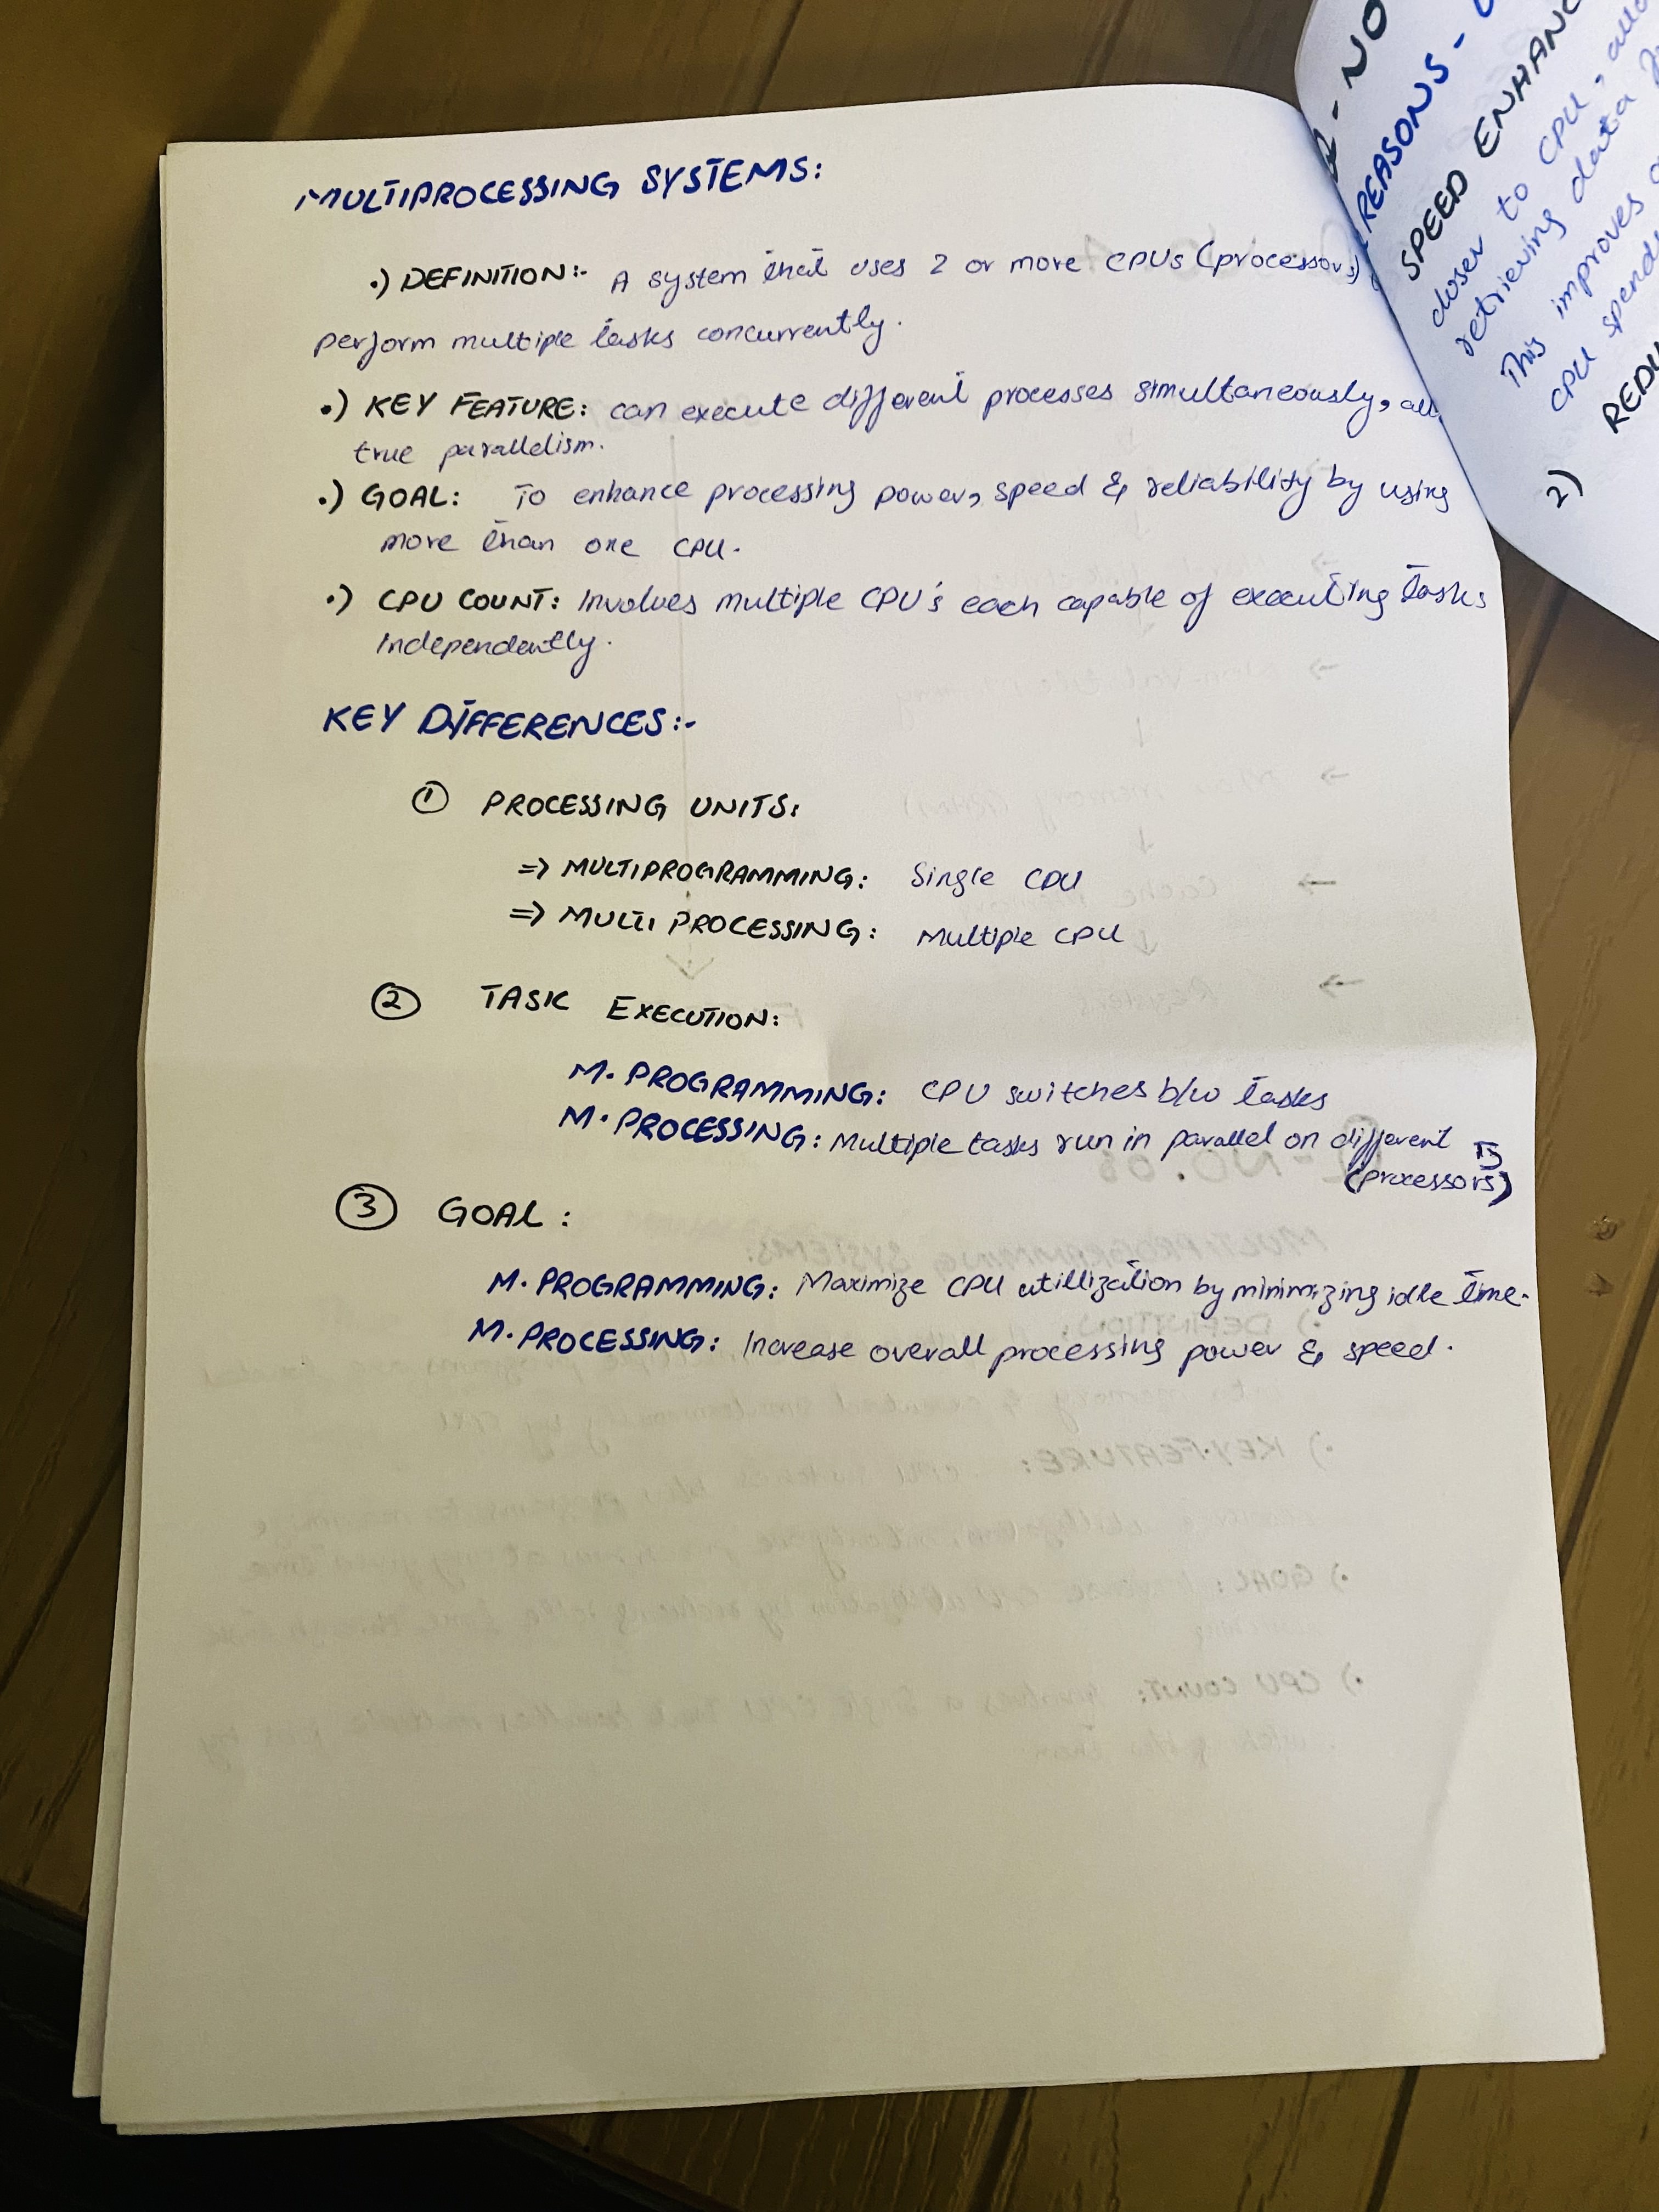 MULTIPROCESSING SYSTEMS:
.) DEFINITION:- A system that uses 2 or more CPUs (processors)
perform multiple tasks concurrently.
.) KEY FEATURE: can execute different processes simultaneously,
true parallelism.
.) GOAL: To enhance processing power, speed & reliability by using
more than one CPU.
.) CPU COUNT: Involves multiple CPU's each capable of executing tasks
Independently.
KEY DIFFERENCES:-
① PROCESSING UNITS:
=> MULTIPROGRAMMING: Single CPU
=> MULTI PROCESSING: Multiple CPU
② TASK EXECUTION:
M. PROGRAMMING: CPU switches b/w tasks
M. PROCESSING: Multiple tasks run in parallel on different
(processors)
③ GOAL:
M. PROGRAMMING: Maximize CPU utillization by minimizing idle time.
M. PROCESSING: Increase overall processing power & speed.
REASONS -
SPEED
closer to CPU,
retrieving data
This improves
CPU
2)